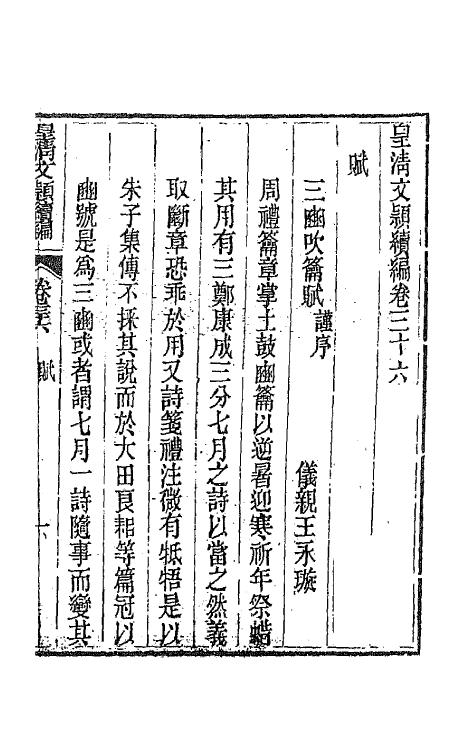 皇清文頴續編卷三十六
賦
三豳吹籥賦謹序
儀親王永璇
周禮籥章掌土鼓豳籥以逆暑迎寒祈年祭蜡
其用有三鄭康成三分七月之詩以當之然義
取斷章恐乖於用又詩箋禮注微有牴牾是以
朱子集傳不採其說而於大田良耜等篇冠以
豳號是為三豳或者謂七月一詩隨事而變其
皇清文頴續編
卷三十六
賦
一